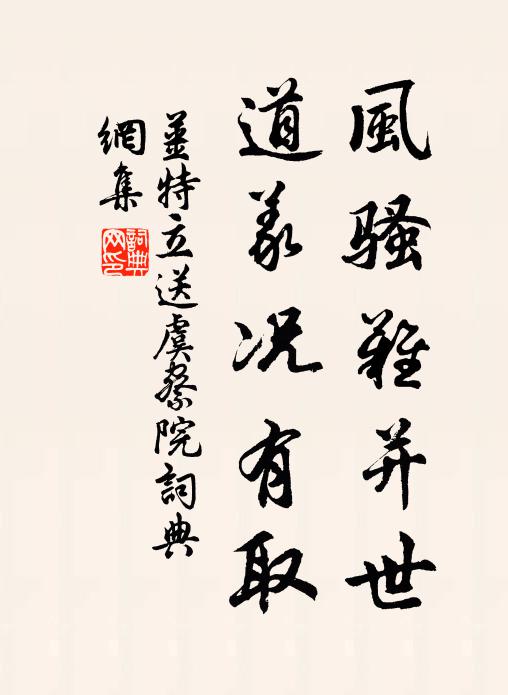 風騷難并世
道義況有取
薑特立送虞察院詞典
網集
詞典
网印